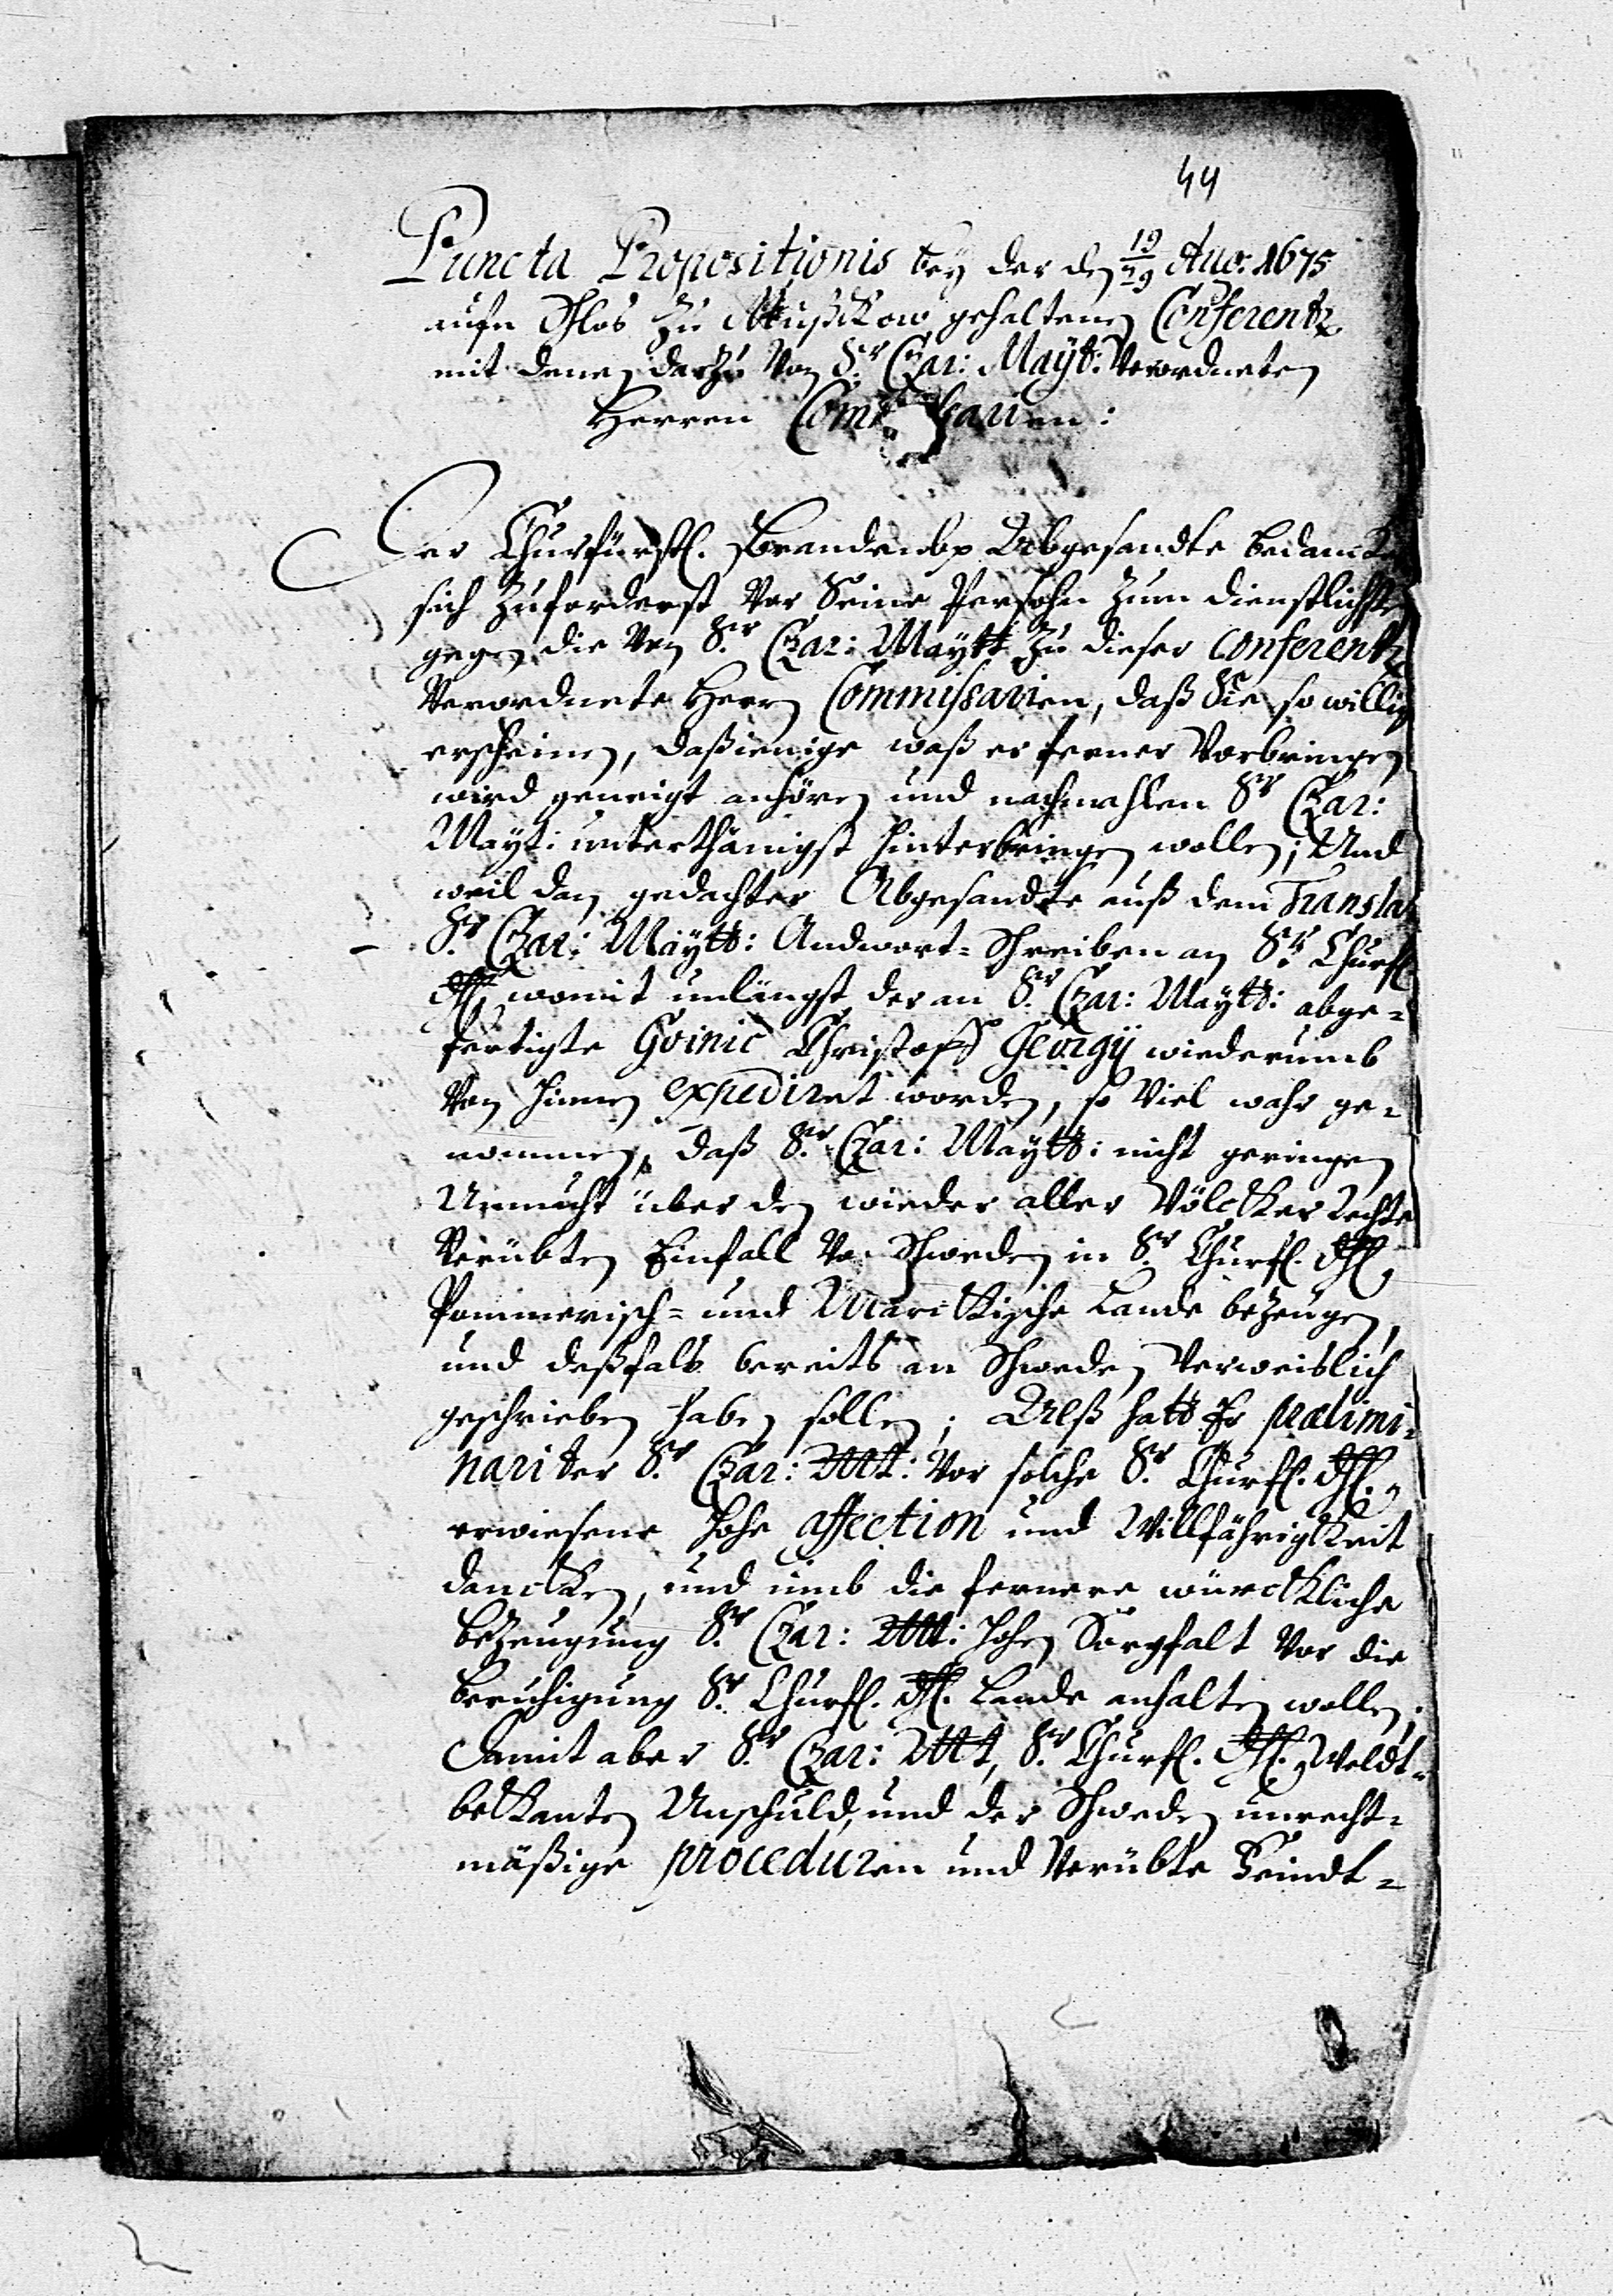 44
Puncta Propositionis bey der den 19/29 Aug: 1675
aufn Schlos zu Mußkow gehaltenen Conferentz
mit denen darzu von Sr Czar: Mayt: verordneten
Herren Commissarien:
Der Churfürstl. Brandenbg Abgesandte bedancket
sich zuforderst vor Seine Persohn zum dienstlichsten
gegen die von Sr. Czar: Maytt zu dieser conferentz
verordnete Herrn Commissarien, daß Sie so willig
erscheinen, daßienige waß er ferner vorbringen
wird geneigt anhören und nachmahlen Sr Czar:
Mayt: unterthänigst hinterbringen wollen; Und
weil dan gedachter Abgesandte auß dem Translat
Sr Czar: Maytt: Andwort-Schreiben an Sr. Churfl
Dhl, womit unlängst der an Sr. Czar: Maytt: abge-
fertigte Christoff Georgij wiederumb
von hinnen expediret worden, so viel wahr ge-
nommen, daß Sr. Czar: Maytt: nicht geringen
Unmuht über den wieder aller Völcker Rechte
verübten Einfall der Schweden in Sr. Churfl. Dhl,
Pommerisch- und Marckische Lande bezeugen,
und deßfals bereits an Schweden verweislich
geschrieben haben sollen; Alß hatt Er prælimi-
nariter Sr. Czar: Mtt: vor solche Sr. Churfl. Dhl.
erwiesene hohe affection und Willfährigkeit
dancken, und umb die fernere würckliche
bezeugung Sr. Czar: Mtt: hohen Sorgfalt vor die
beruhigung Sr. Churfl. Dhl. Lande anhalten wollen.
Damit aber Sr. Czar: Mtt, Sr. Churfl. Dhl. Weldt-
bekanten Unschuld, und der Schweden unrecht-
mäßige proceduren und verübte Feindt-